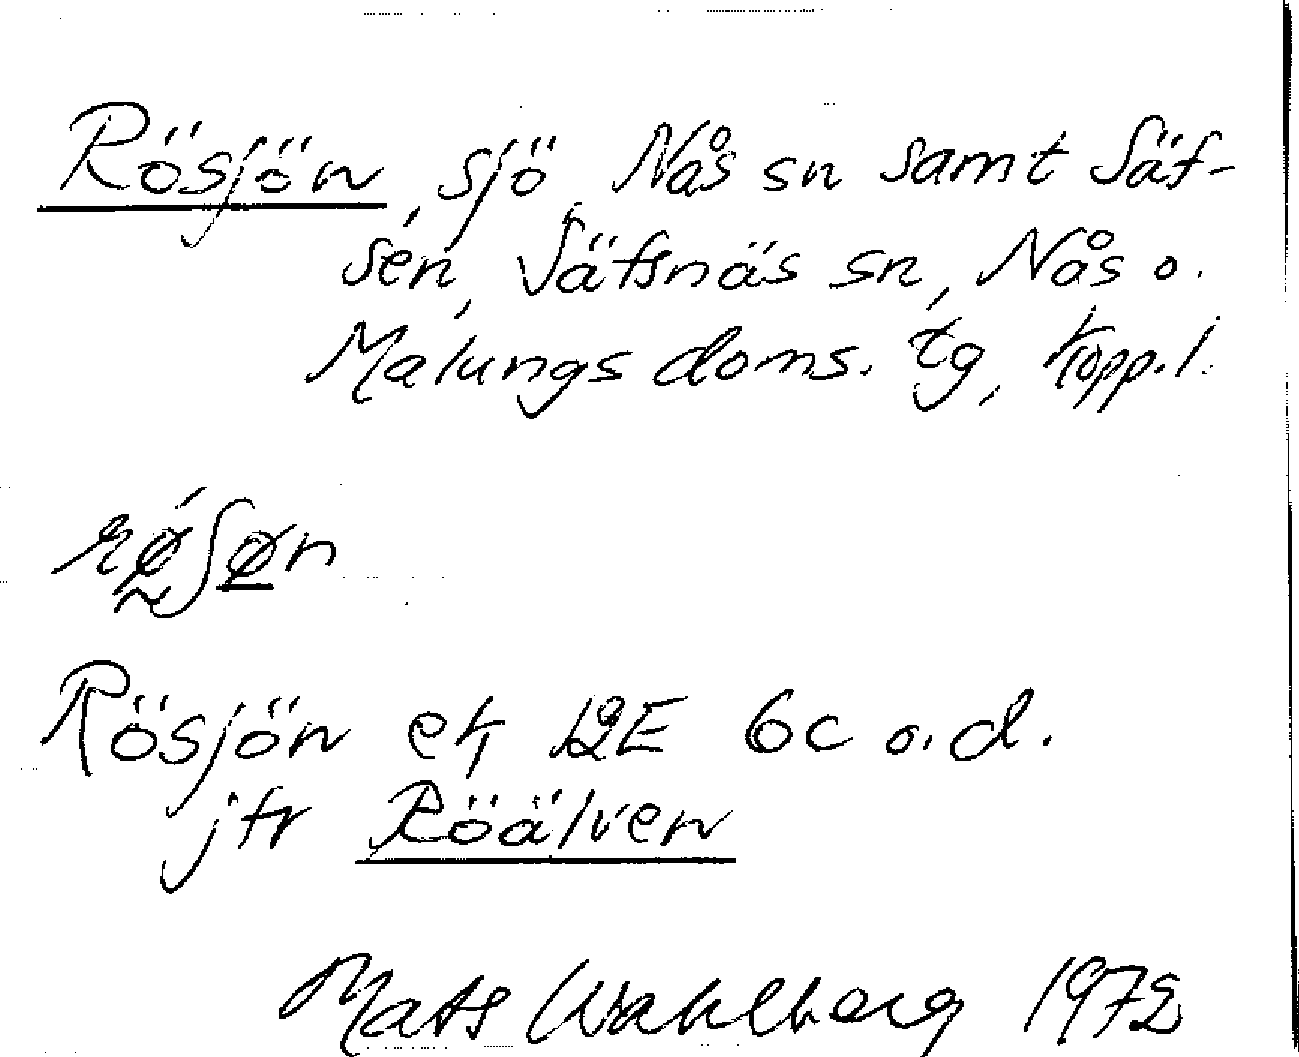 Rösjön, sjö, Nås sn samt Säf-
sen, Säfsnäs sn, Nås o.
Malungs doms. tg, Kopp. l.
Rösjön ek 12E 6c o.d.
jfr Röälven
Mats Wahlberg 1972